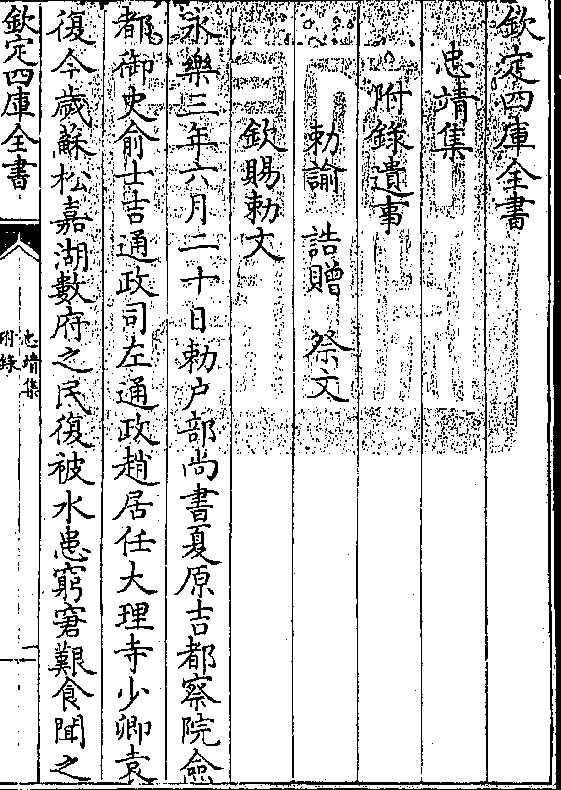 欽定四庫全書
忠靖集
附錄遺事
勅諭　誥贈　祭文
欽賜勅文
永樂三年六月二十日勅户部尚書夏原吉都察院僉
都御史俞士吉通政司左通政趙居任大理寺少卿袁
復今歲蘇松嘉湖數府之民復被水患窮窘艱食聞之
欽定四庫全書
忠靖集
附錄
一